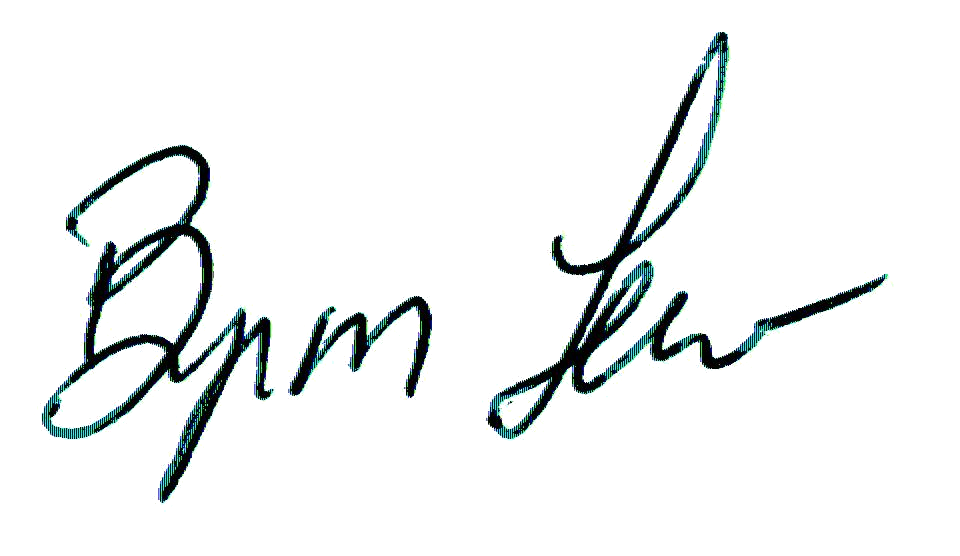 Byron Lew